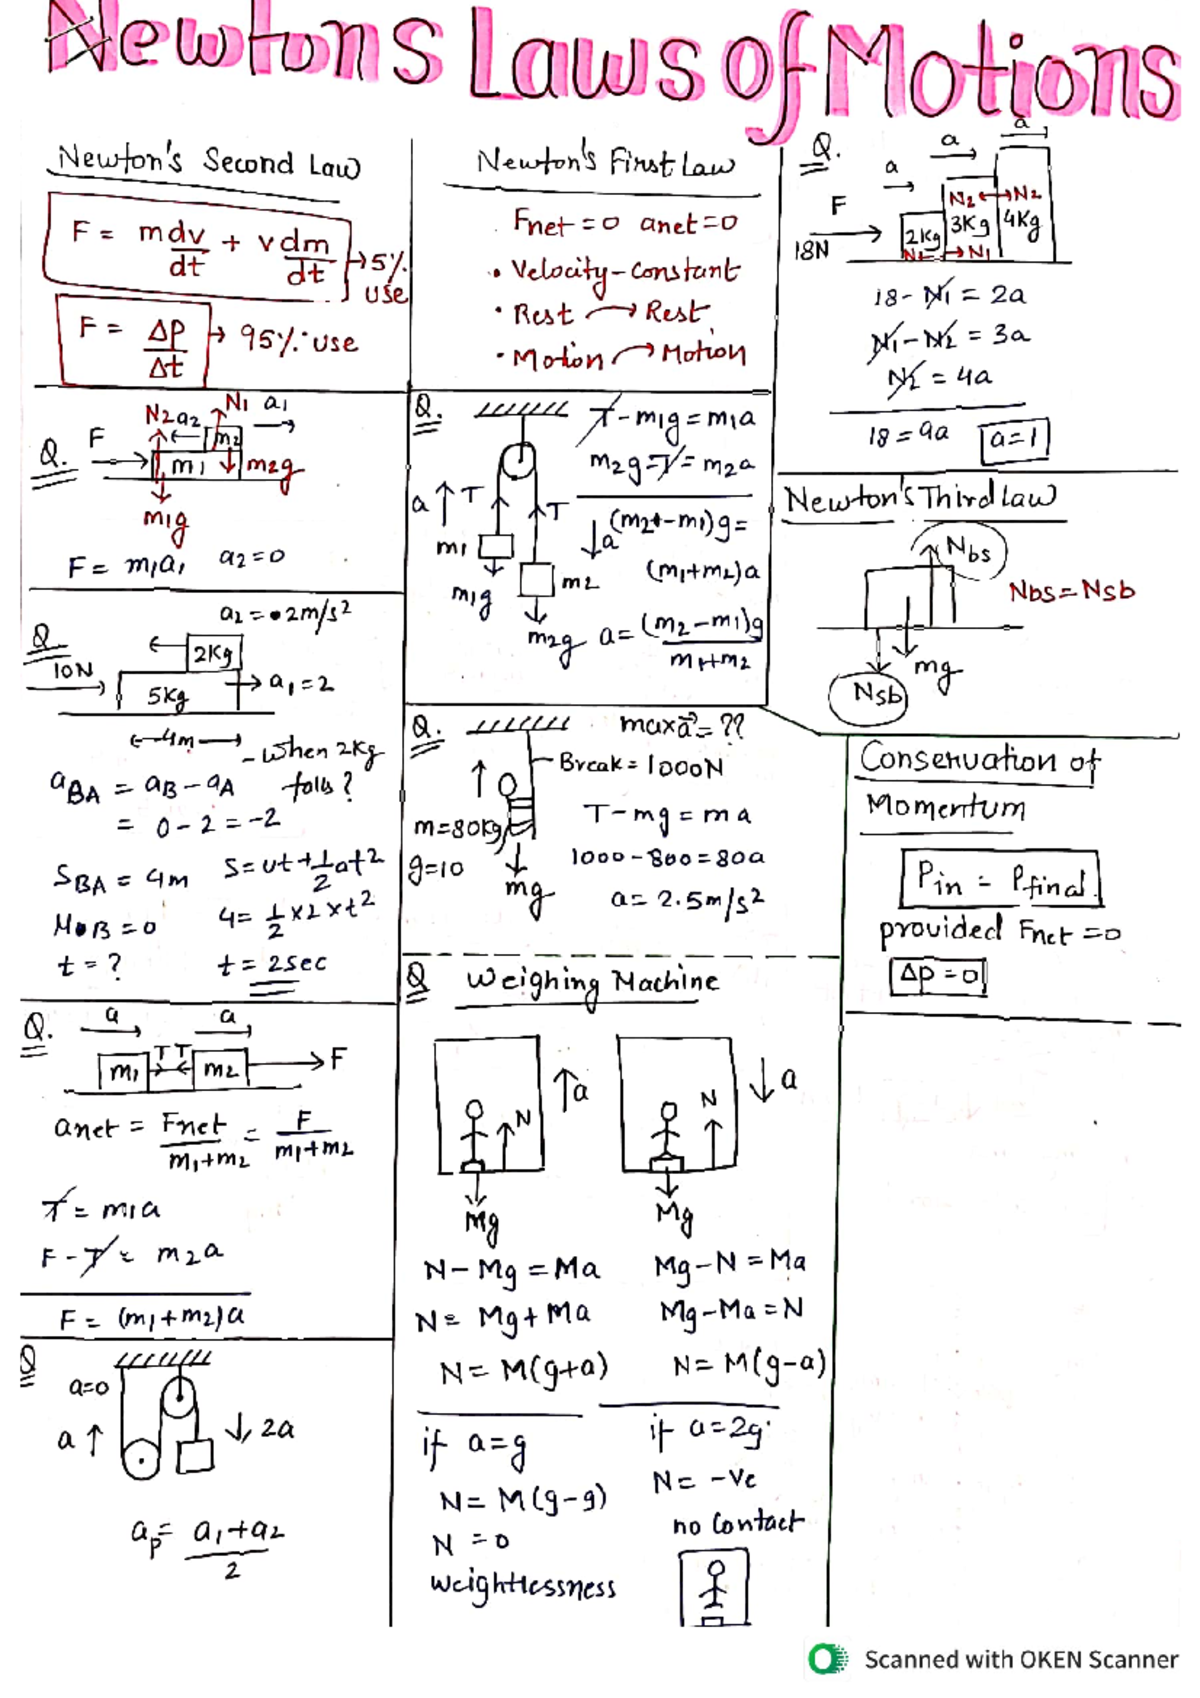 Newtons Laws of Motions
Newton's Second Law
F = mdv/dt + vdm/dt → 5% use
F = Δp/Δt → 95% use
Q.
F
N2 a2 N1 a1
m2
m1 m2g
m1g
F = m1a1 a2=0
Q.
a2 = 2m/s²
10N
2kg
5kg → a1 = 2
←4m→ - when 2kg
falls?
aBA = aB - aA
= 0 - 2 = -2
SBA = 4m S = ut + 1/2 at²
4 = 1/2 x 2 x t²
t = ? t = 2sec
Q.
a a
m1 T T m2 → F
anet = Fnet/m1+m2 = F/m1+m2
T = m1a
F - T = m2a
F = (m1+m2)a
Q
a=0
a ↑ ↓ 2a
ap = a1+a2/2
Newton's First Law
Fnet = 0 anet = 0
• Velocity - constant
• Rest → Rest
• Motion → Motion
Q.
T - m1g = m1a
m2g - T = m2a
a ↑ T T ↓ a
(m2 - m1)g =
(m1+m2)a
m1 m2
m1g
m2g
a = (m2 - m1)g/m1+m2
Q.
max a = ??
Break = 1000N
m = 80kg T - mg = ma
g = 10 1000 - 800 = 80a
mg a = 2.5m/s²
Q Weighing Machine
↑a ↓a
N N
Mg Mg
N - Mg = Ma Mg - N = Ma
N = Mg + Ma Mg - Ma = N
N = M(g+a) N = M(g-a)
if a = g if a = 2g
N = M(g-g) N = -ve
N = 0 no Contact
weightlessness
Q.
a a a
F
18N
2kg 3kg 4kg
N1 → N1 N2 ← → N2
18 - N1 = 2a
N1 - N2 = 3a
N2 = 4a
18 = 9a a = 1
Newton's Third Law
Nbs
Nbs = Nsb
mg
Nsb
Conservation of
Momentum
Pin = Pfinal
provided Fnet = 0
Δp = 0
Scanned with OKEN Scanner